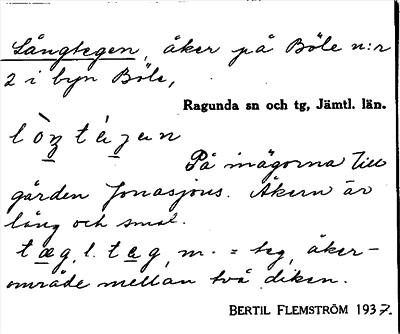 Långtegen, åker på Böle n:r
2 i byn Böle,
Ragunda sn och tg, Jämtl. län.
På inägorna till
gården Jonasjons. Åkern är
lång och smal.
tæg, l. teg, m. = teg, åker-
område mellan två diken.
BERTIL FLEMSTRÖM 1937.